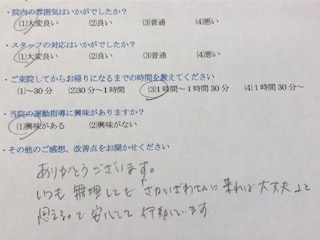 ・院内の雰囲気はいかがでしたか？
(1)大変良い (2)良い (3)普通 (4)悪い
・スタッフの対応はいかがでしたか？
(1)大変良い (2)良い (3)普通 (4)悪い
・ご来院してからお帰りになるまでの時間を教えてください
(1)～30分 (2)30分～1時間 (3)1時間～1時間30分 (4)1時間30分～
・当院の運動指導に興味がありますか？
(1)興味がある (2)興味がない
・その他のご感想、改善点をお聞かせください
ありがとうございます。
いつも無理しても さかいざわさんに来れば大丈夫」と
思えるので安心して行動しています